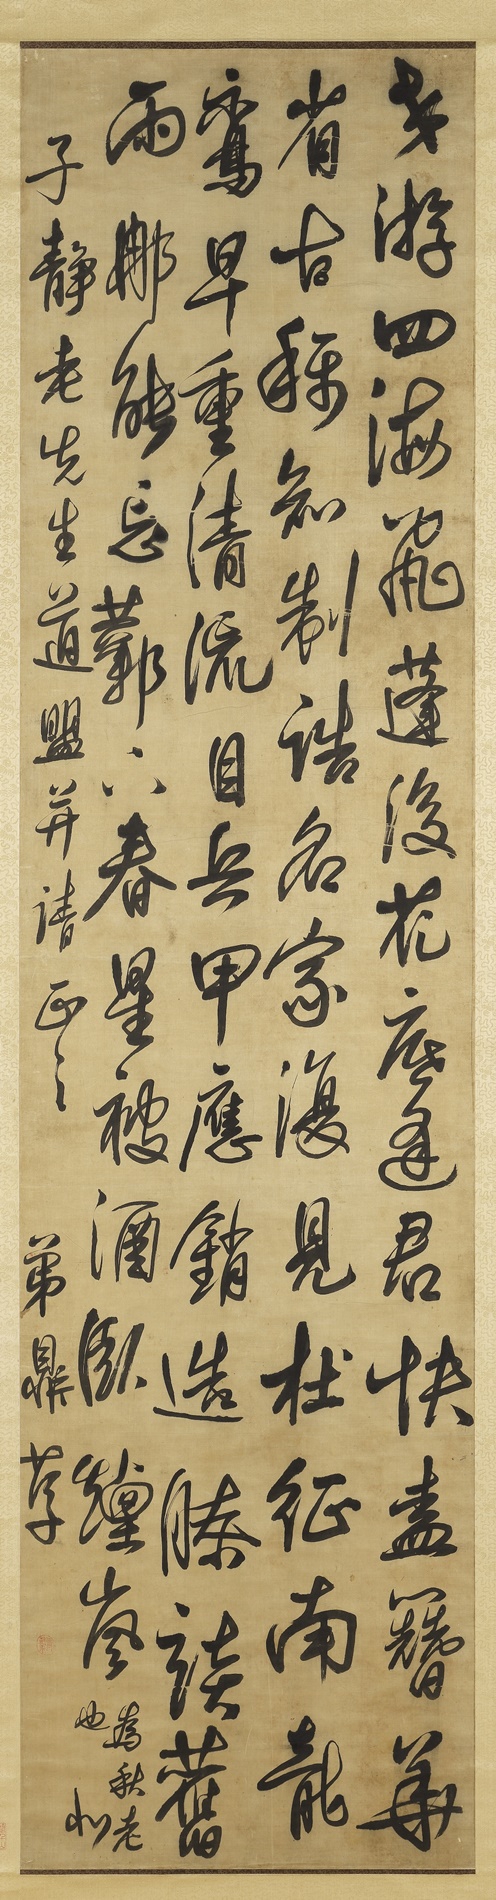 老游四海飛蓬後花底逢君快盍簪華
省古稱知制誥名家復見杜征南龍
鸞早重清流目兵甲應銷造膝談舊
雨那能忘薊下春星被酒臥煙嵐
為秋老
也
子靜老先生道盟并請正之
弟鼎草